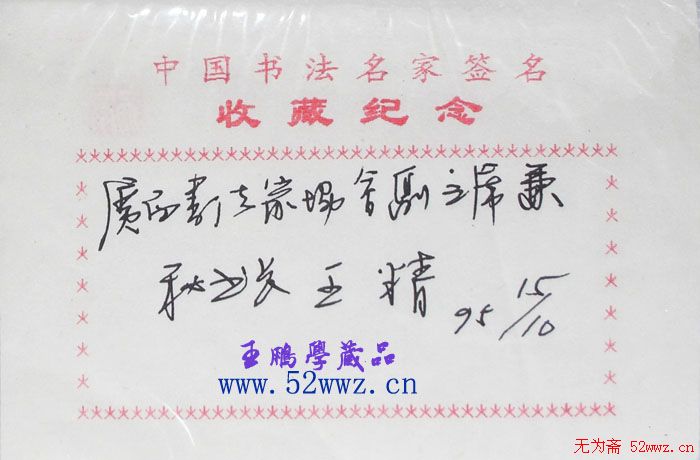 中国书法名家签名
收藏纪念
廣西书法家协会副主席兼
秘书长 王精 95 15/10
王鵬學藏品
www.52wwz.cn
无为斋 52wwz.cn